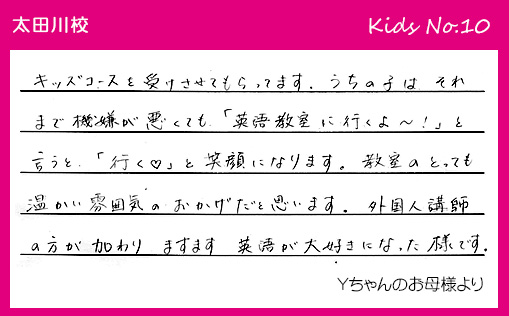 太田川校
Kids No.10
キッズコースを受けさせてもらってます。うちの子は それ
まで機嫌が悪くても、「英語教室に行くよ～！」と
言うと、「行く♡」と笑顔になります。教室のとっても
温かい雰囲気のおかげだと思います。外国人講師
の方が加わり ますます 英語が大好きになった様です。
Yちゃんのお母様より